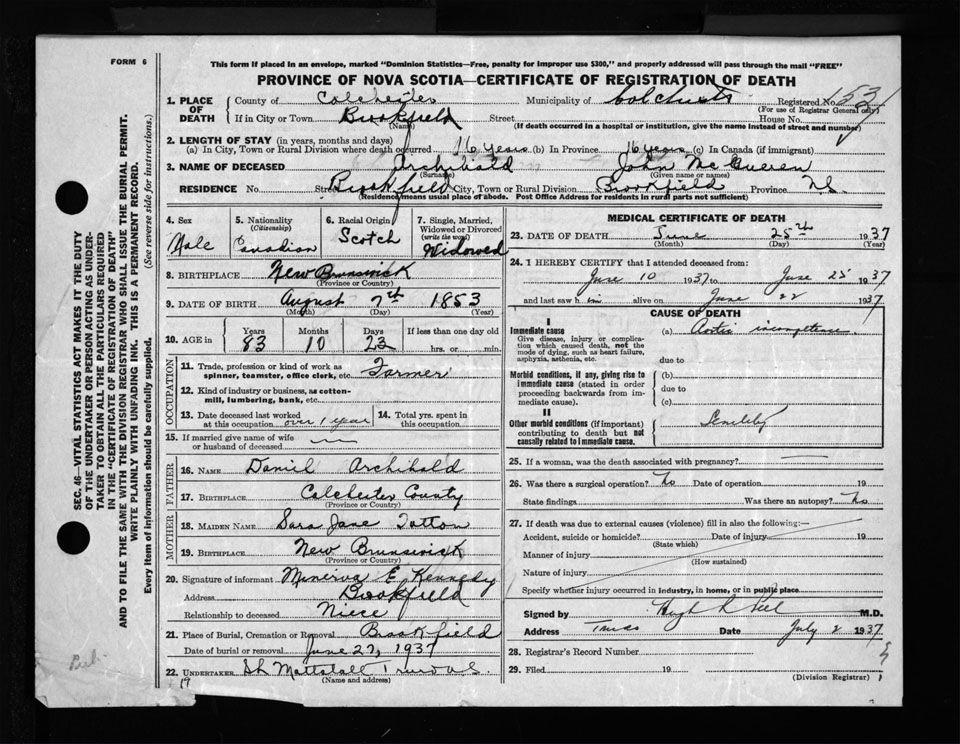 FORM 6
This form if placed in an envelope, marked "Dominion Statistics—Free, penalty for improper use $300," and properly addressed will pass through the mail "FREE"
PROVINCE OF NOVA SCOTIA—CERTIFICATE OF REGISTRATION OF DEATH
1. PLACE OF DEATH County of Colchester Municipality of Colchester Registered No. 153
(For use of Registrar General only)
If in City or Town Brookfield Street House No.
(Name) (If death occurred in a hospital or institution, give the name instead of street and number)
2. LENGTH OF STAY (in years, months and days)
(a) In City, Town or Rural Division where death occurred 16 years (b) In Province 16 years (c) In Canada (if immigrant)
3. NAME OF DECEASED Archibald John Mc
(Surname) (Given name or names)
RESIDENCE No. Street Brookfield City, Town or Rural Division Brookfield Province N.S.
(Residence means usual place of abode. Post Office Address for residents in rural parts not sufficient)
4. Sex
Male
5. Nationality
(Citizenship)
Canadian
6. Racial Origin
Scotch
7. Single, Married, Widowed or Divorced
(write the word)
Widowed
8. BIRTHPLACE New Brunswick
(Province or Country)
9. DATE OF BIRTH August 7th 1853
(Month) (Day) (Year)
10. AGE in Years Months Days If less than one day old
83 10 23 hrs. or min.
OCCUPATION
11. Trade, profession or kind of work as spinner, teamster, office clerk, etc. Farmer
12. Kind of industry or business, as cotton-mill, lumbering, bank, etc.
13. Date deceased last worked at this occupation over 1 year
14. Total yrs. spent in this occupation
15. If married give name of wife or husband of deceased
FATHER
16. NAME Daniel Archibald
17. BIRTHPLACE Colchester County
(Province or Country)
MOTHER
18. MAIDEN NAME Sara Jane Totton
19. BIRTHPLACE New Brunswick
(Province or Country)
20. Signature of informant Minerva E. Kennedy
Address Brookfield
Relationship to deceased Niece
21. Place of Burial, Cremation or Removal Brookfield
Date of burial or removal June 27, 1937
22. UNDERTAKER Mattatall Truro N.S.
(Name and address)
MEDICAL CERTIFICATE OF DEATH
23. DATE OF DEATH June 25th 1937
(Month) (Day) (Year)
24. I HEREBY CERTIFY that I attended deceased from:
June 10 1937 to June 25 1937
and last saw h im alive on June 22 1937
CAUSE OF DEATH
I
Immediate cause
Give disease, injury or complication which caused death, not the mode of dying, such as heart failure, asphyxia, asthenia, etc.
(a) Aortic incompetence
due to
Morbid conditions, if any, giving rise to immediate cause (stated in order proceeding backwards from immediate cause).
(b)
due to
(c)
II
Other morbid conditions (if important) contributing to death but not causally related to immediate cause.
Senility
25. If a woman, was the death associated with pregnancy?
26. Was there a surgical operation? No Date of operation 19
State findings Was there an autopsy? No
27. If death was due to external causes (violence) fill in also the following:—
Accident, suicide or homicide? Date of injury 19
(State which)
Manner of injury
(How sustained)
Nature of injury
Specify whether injury occurred in industry, in home, or in public place
Signed by Hugh R Peel M.D.
Address Truro Date July 2 1937
28. Registrar's Record Number
29. Filed 19
(Division Registrar)
SEC. 46—VITAL STATISTICS ACT MAKES IT THE DUTY
OF THE UNDERTAKER OR PERSON ACTING AS UNDER-
TAKER TO OBTAIN ALL THE PARTICULARS REQUIRED
IN THE "CERTIFICATE OF REGISTRATION OF DEATH"
AND TO FILE THE SAME WITH THE DIVISION REGISTRAR WHO SHALL ISSUE THE BURIAL PERMIT.
WRITE PLAINLY WITH UNFADING INK. THIS IS A PERMANENT RECORD.
Every item of information should be carefully supplied. (See reverse side for instructions.)
19